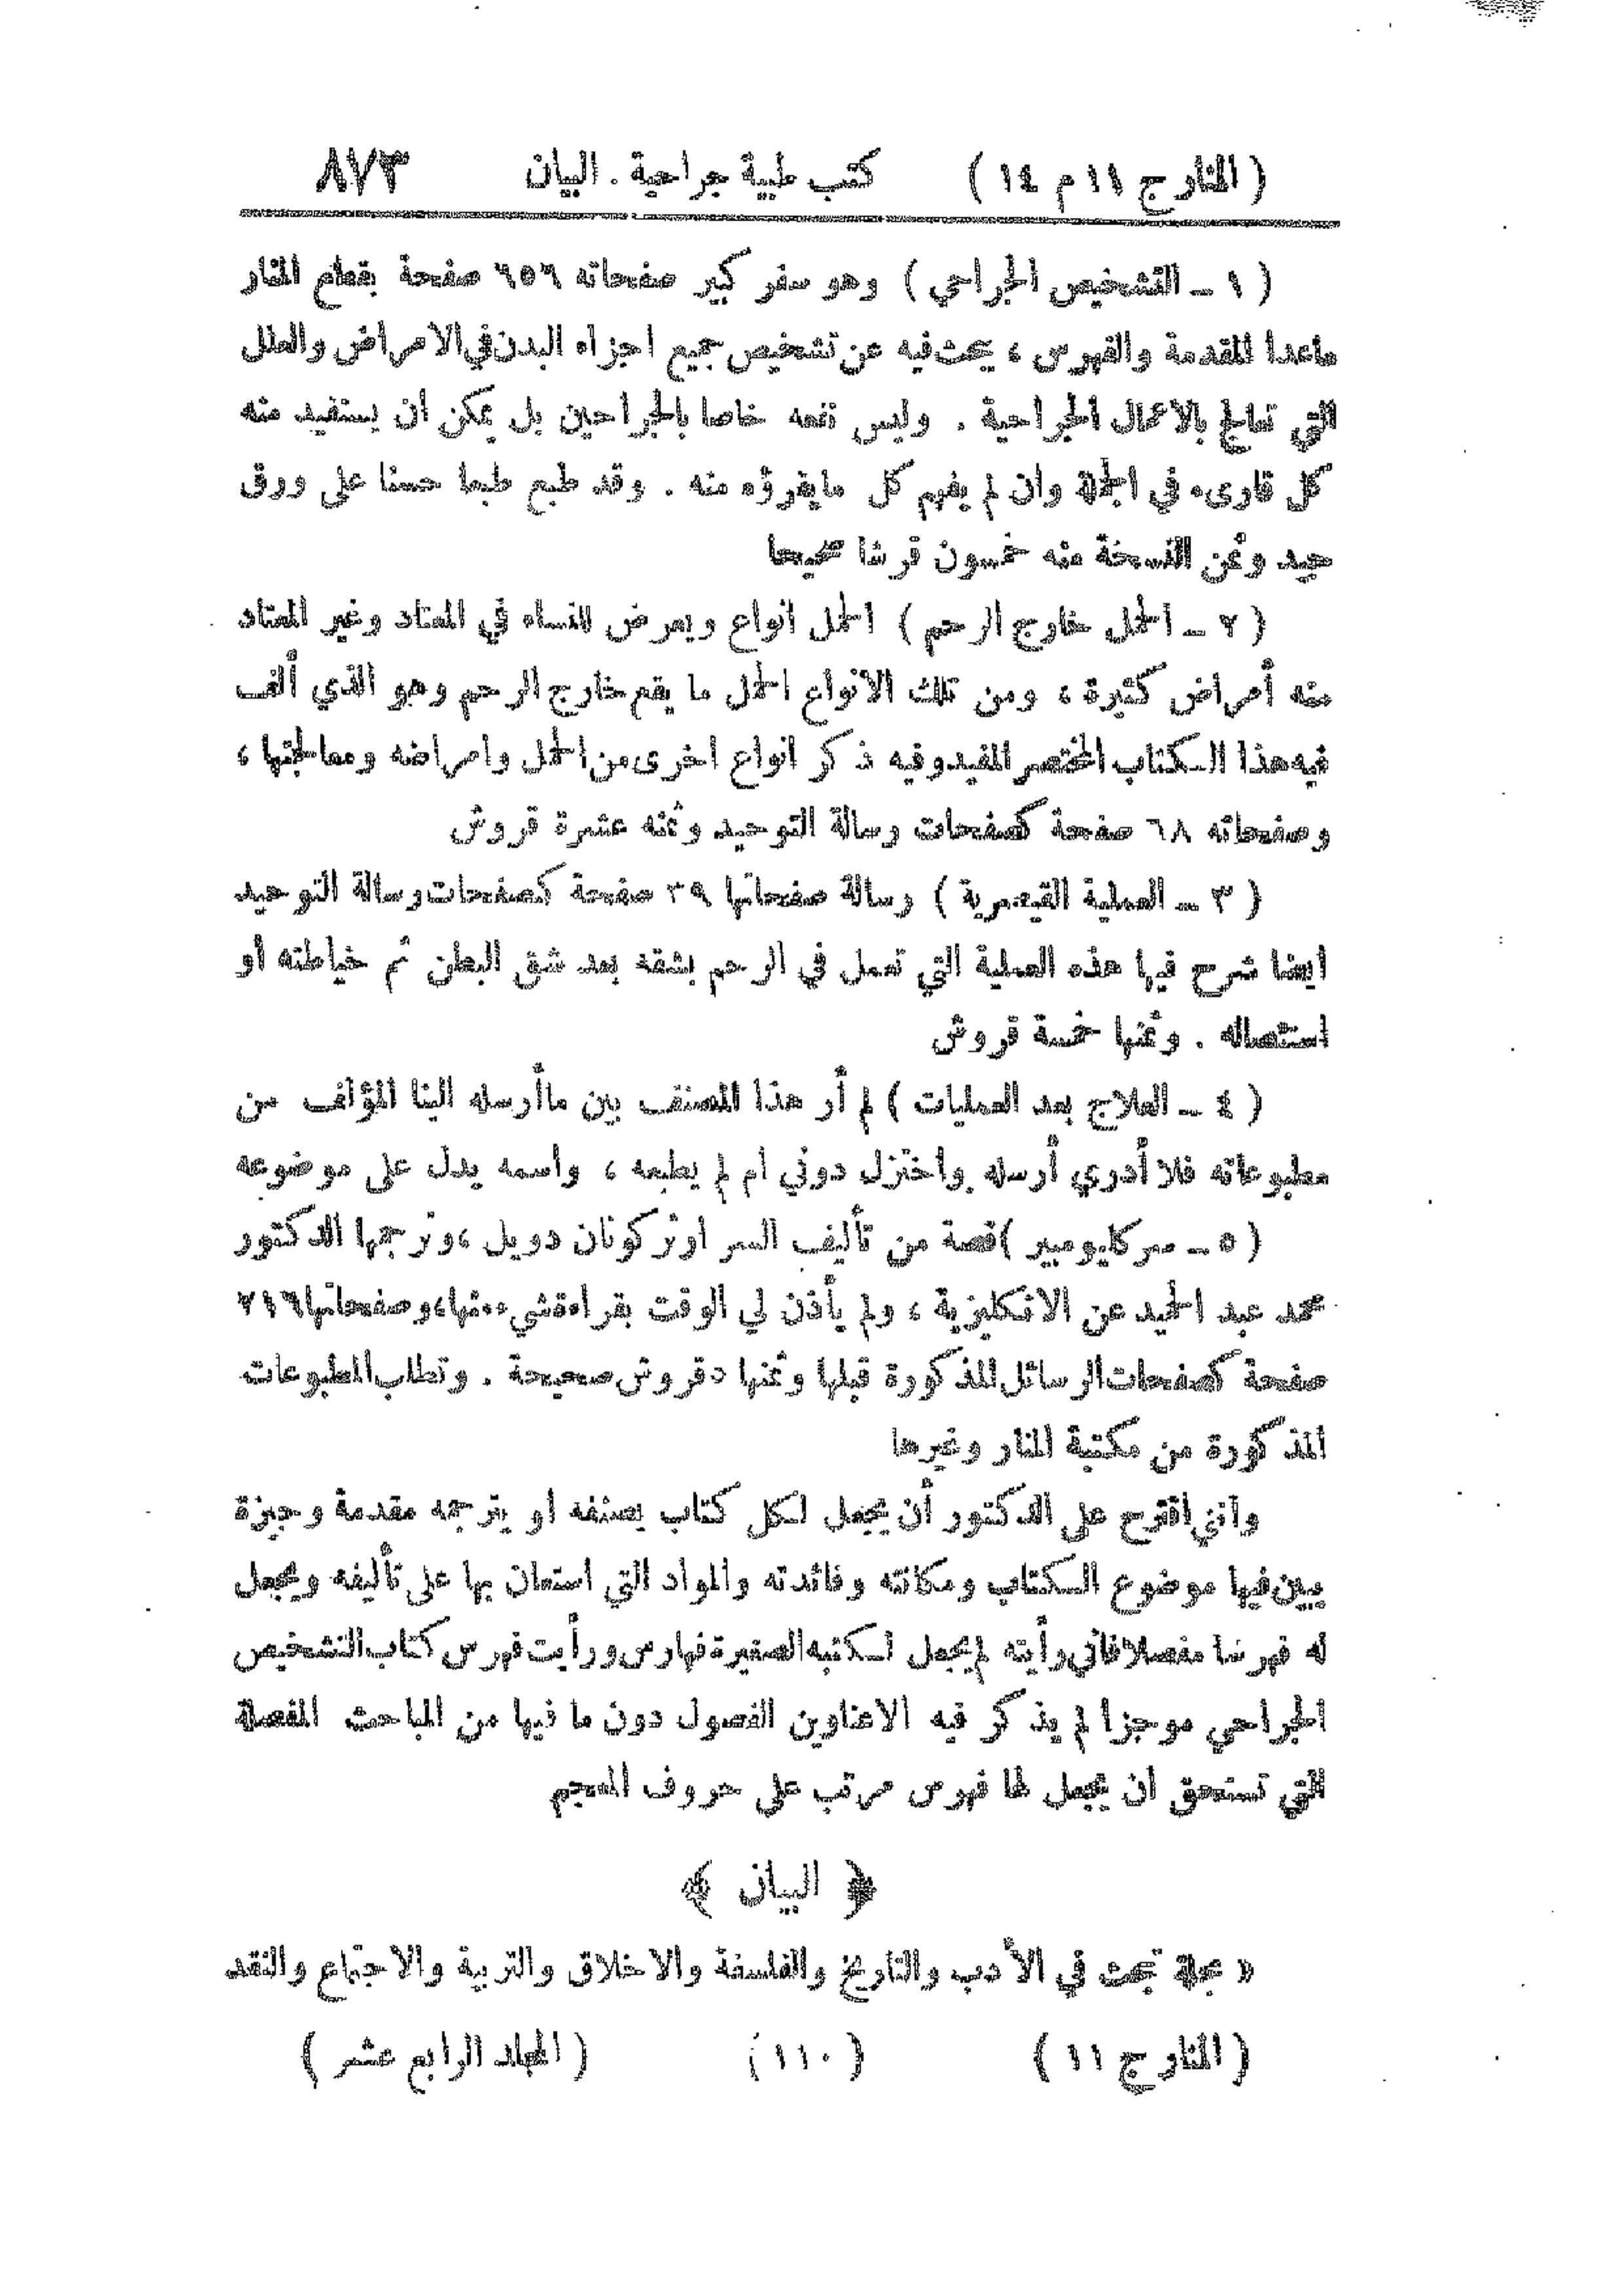 ( المنار ج ١١ م ١٤ ) كتب طبية جراحية . البيان ٨٧٣
( ١ ــ التشخيص الجراحي ) وهو سفر كبير صفحاته ٦٥٦ صفحة بقطع المنار
ماعدا المقدمة والفهرس ، يبحث فيه عن تشخيص جميع اجزاء البدن في الامراض والعلل
التي تعالج بالاعمال الجراحية . وليس نفعه خاصا بالجراحين بل يمكن ان يستفيد منه
كل قارىء في الجملة وان لم يفهم كل مايقرؤه منه . وقد طبع طبعا حسنا على ورق
جيد وثمن النسخة منه خمسون قرشا صحيحا
( ٢ ــ الحمل خارج الرحم ) الحمل انواع ويعرض للنساء في المعتاد وغير المعتاد
منه أمراض كثيرة ، ومن تلك الانواع الحمل ما يقع خارج الرحم وهو الذي ألف
فيه هذا الكتاب المختصر المفيد وفيه ذكر انواع اخرى من الحمل وامراضه ومعالجتها ،
وصفحاته ٦٨ صفحة كصفحات رسالة التوحيد وثمنه عشرة قروش
( ٣ ــ العملية القيصرية ) رسالة صفحاتها ٣٩ صفحة كصفحات رسالة التوحيد
ايضا شرح فيها هذه العملية التي تعمل في الرحم بشقه بعد شق البطن ثم خياطته أو
استئصاله . وثمنها خمسة قروش
( ٤ ــ العلاج بعد العمليات ) لم أر هذا المصنف بين ماأرسله الينا المؤلف من
مطبوعاته فلا أدري أرسله واختزل دوني ام لم يطبعه ، واسمه يدل على موضوعه
( ٥ ــ سركايومبير ) قصة من تأليف السر ارثر كونان دويل ، وترجمها الدكتور
محمد عبد الحميد عن الانكليزية ، ولم يأذن لي الوقت بقراءة شيء منها، وصفحاتها ٢١٦
صفحة كصفحات الرسائل المذكورة قبلها وثمنها ٥ قروش صحيحة . وتطلب المطبوعات
المذكورة من مكتبة المنار وغيرها
وانني اقترح على الدكتور أن يجعل لكل كتاب يصنفه او يترجمه مقدمة وجيزة
يبين فيها موضوع الكتاب ومكانته وفائدته والمواد التي استعان بها على تأليفه ويجعل
له فهرسا مفصلا فاني رأيته لم يجعل لكتبه الصغيرة فهارس ورأيت فهرس كتاب التشخيص
الجراحي موجزا لم يذكر فيه الا عناوين الفصول دون ما فيها من المباحث المفصلة
التي تستحق ان يجعل لها فهرس مرتب على حروف المعجم
﴿ البيان ﴾
« مجلة تبحث في الأدب والتاريخ والفلسفة والاخلاق والتربية والاجتماع والنقد
( المنار ج ١١ ) ( ١١٠ ) ( المجلد الرابع عشر )